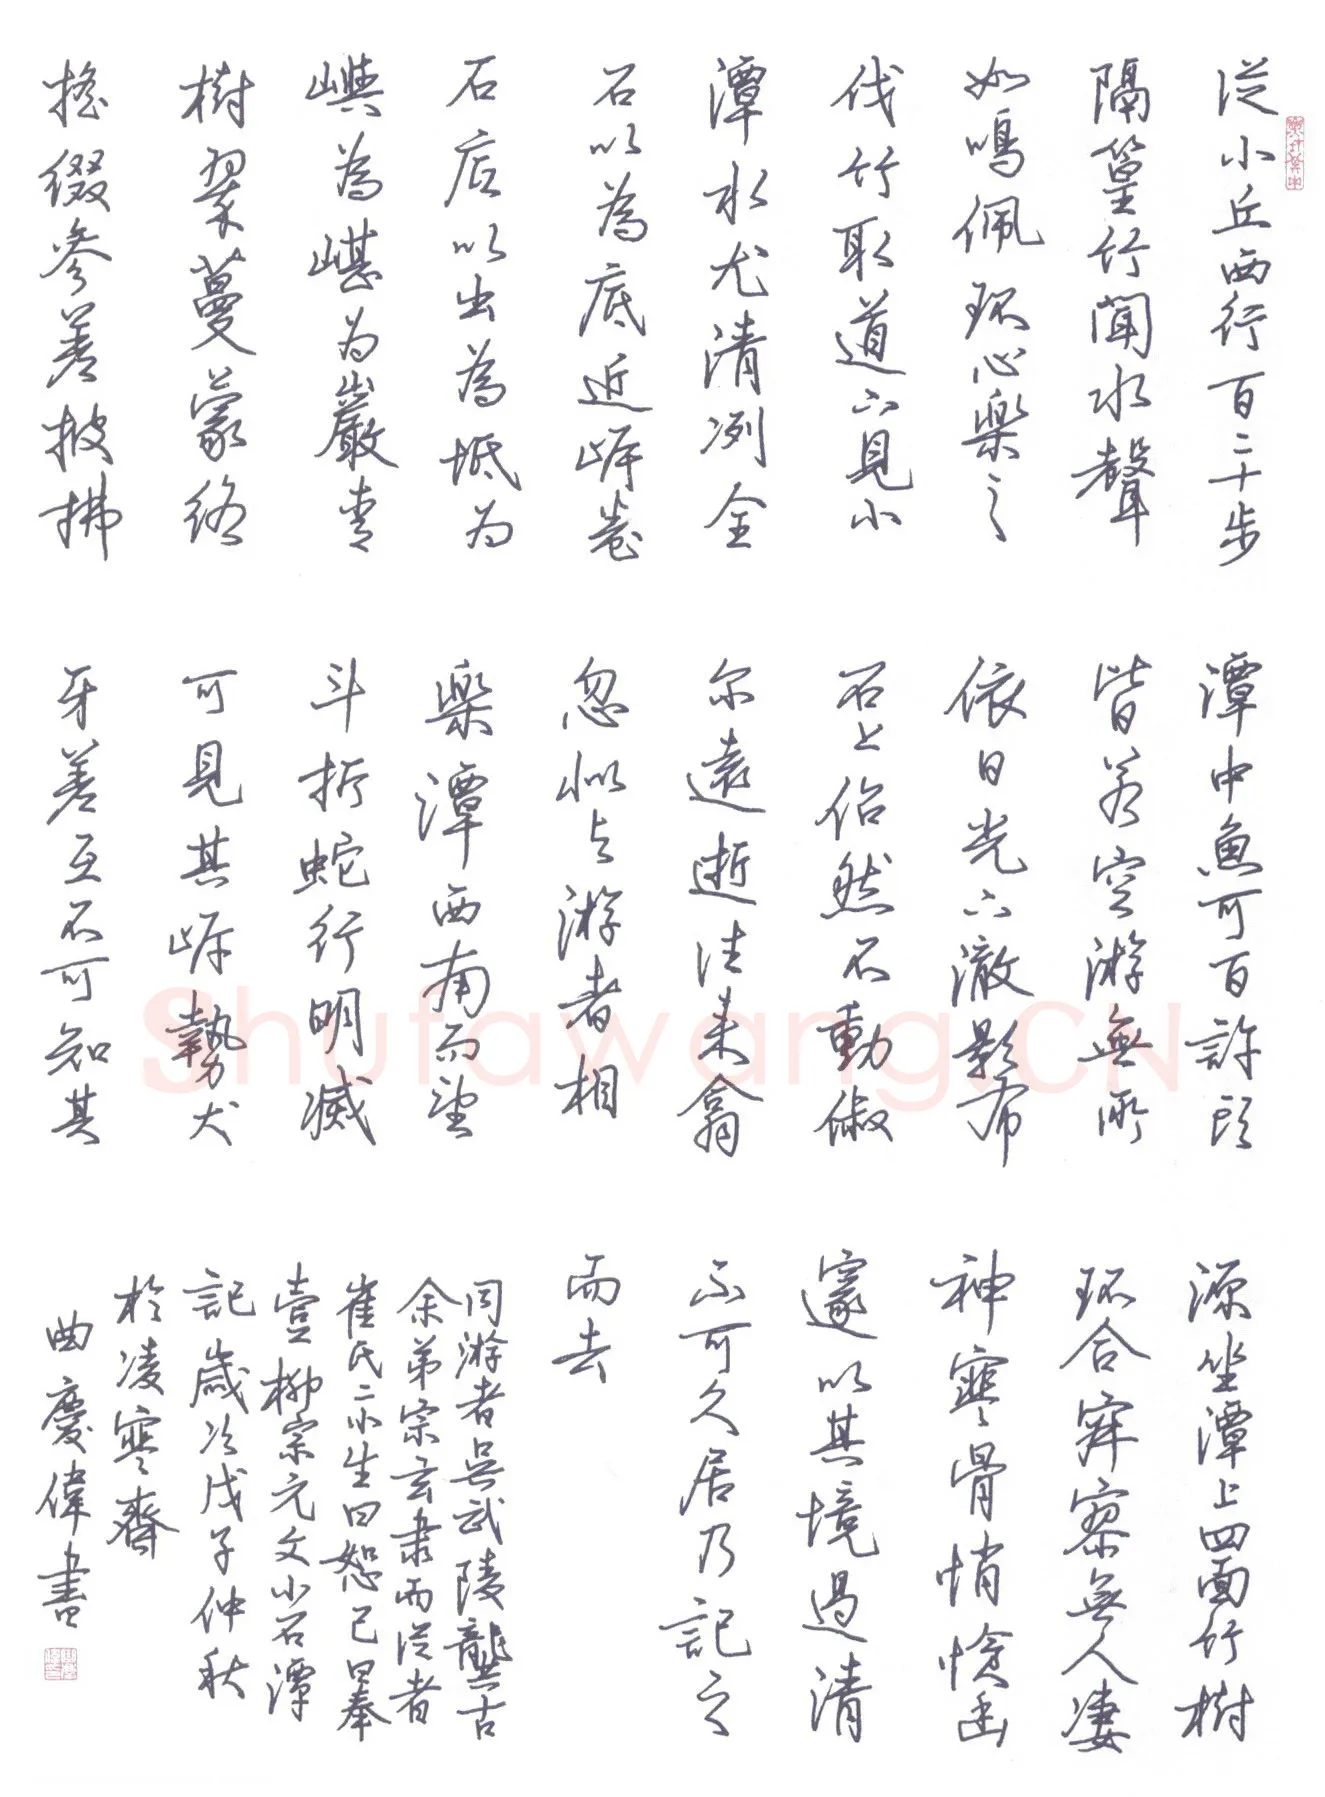 從小丘西行百二十步
隔篁竹聞水聲
如鳴佩環心樂之
伐竹取道下見小
潭水尤清冽全
石以為底近岸卷
石底以出為坻為
嶼為嵁为巖青
樹翠蔓蒙絡
搖綴參差披拂
潭中魚可百許頭
皆若空游無所
依日光下澈影布
石上佁然不動俶
尔遠逝往来翕
忽似与游者相
樂潭西南而望
斗折蛇行明滅
可見其岸勢犬
牙差互不可知其
源坐潭上四面竹樹
环合寂寥無人凄
神寒骨悄愴幽
邃以其境過清
不可久居乃記之
而去
同游者吳武陵龔古
余弟宗玄隶而從者
崔氏二小生曰恕己曰奉
壹柳宗元文小石潭
記歲次戊子仲秋
於凌寒齋
曲慶偉書
Shufawang.CN